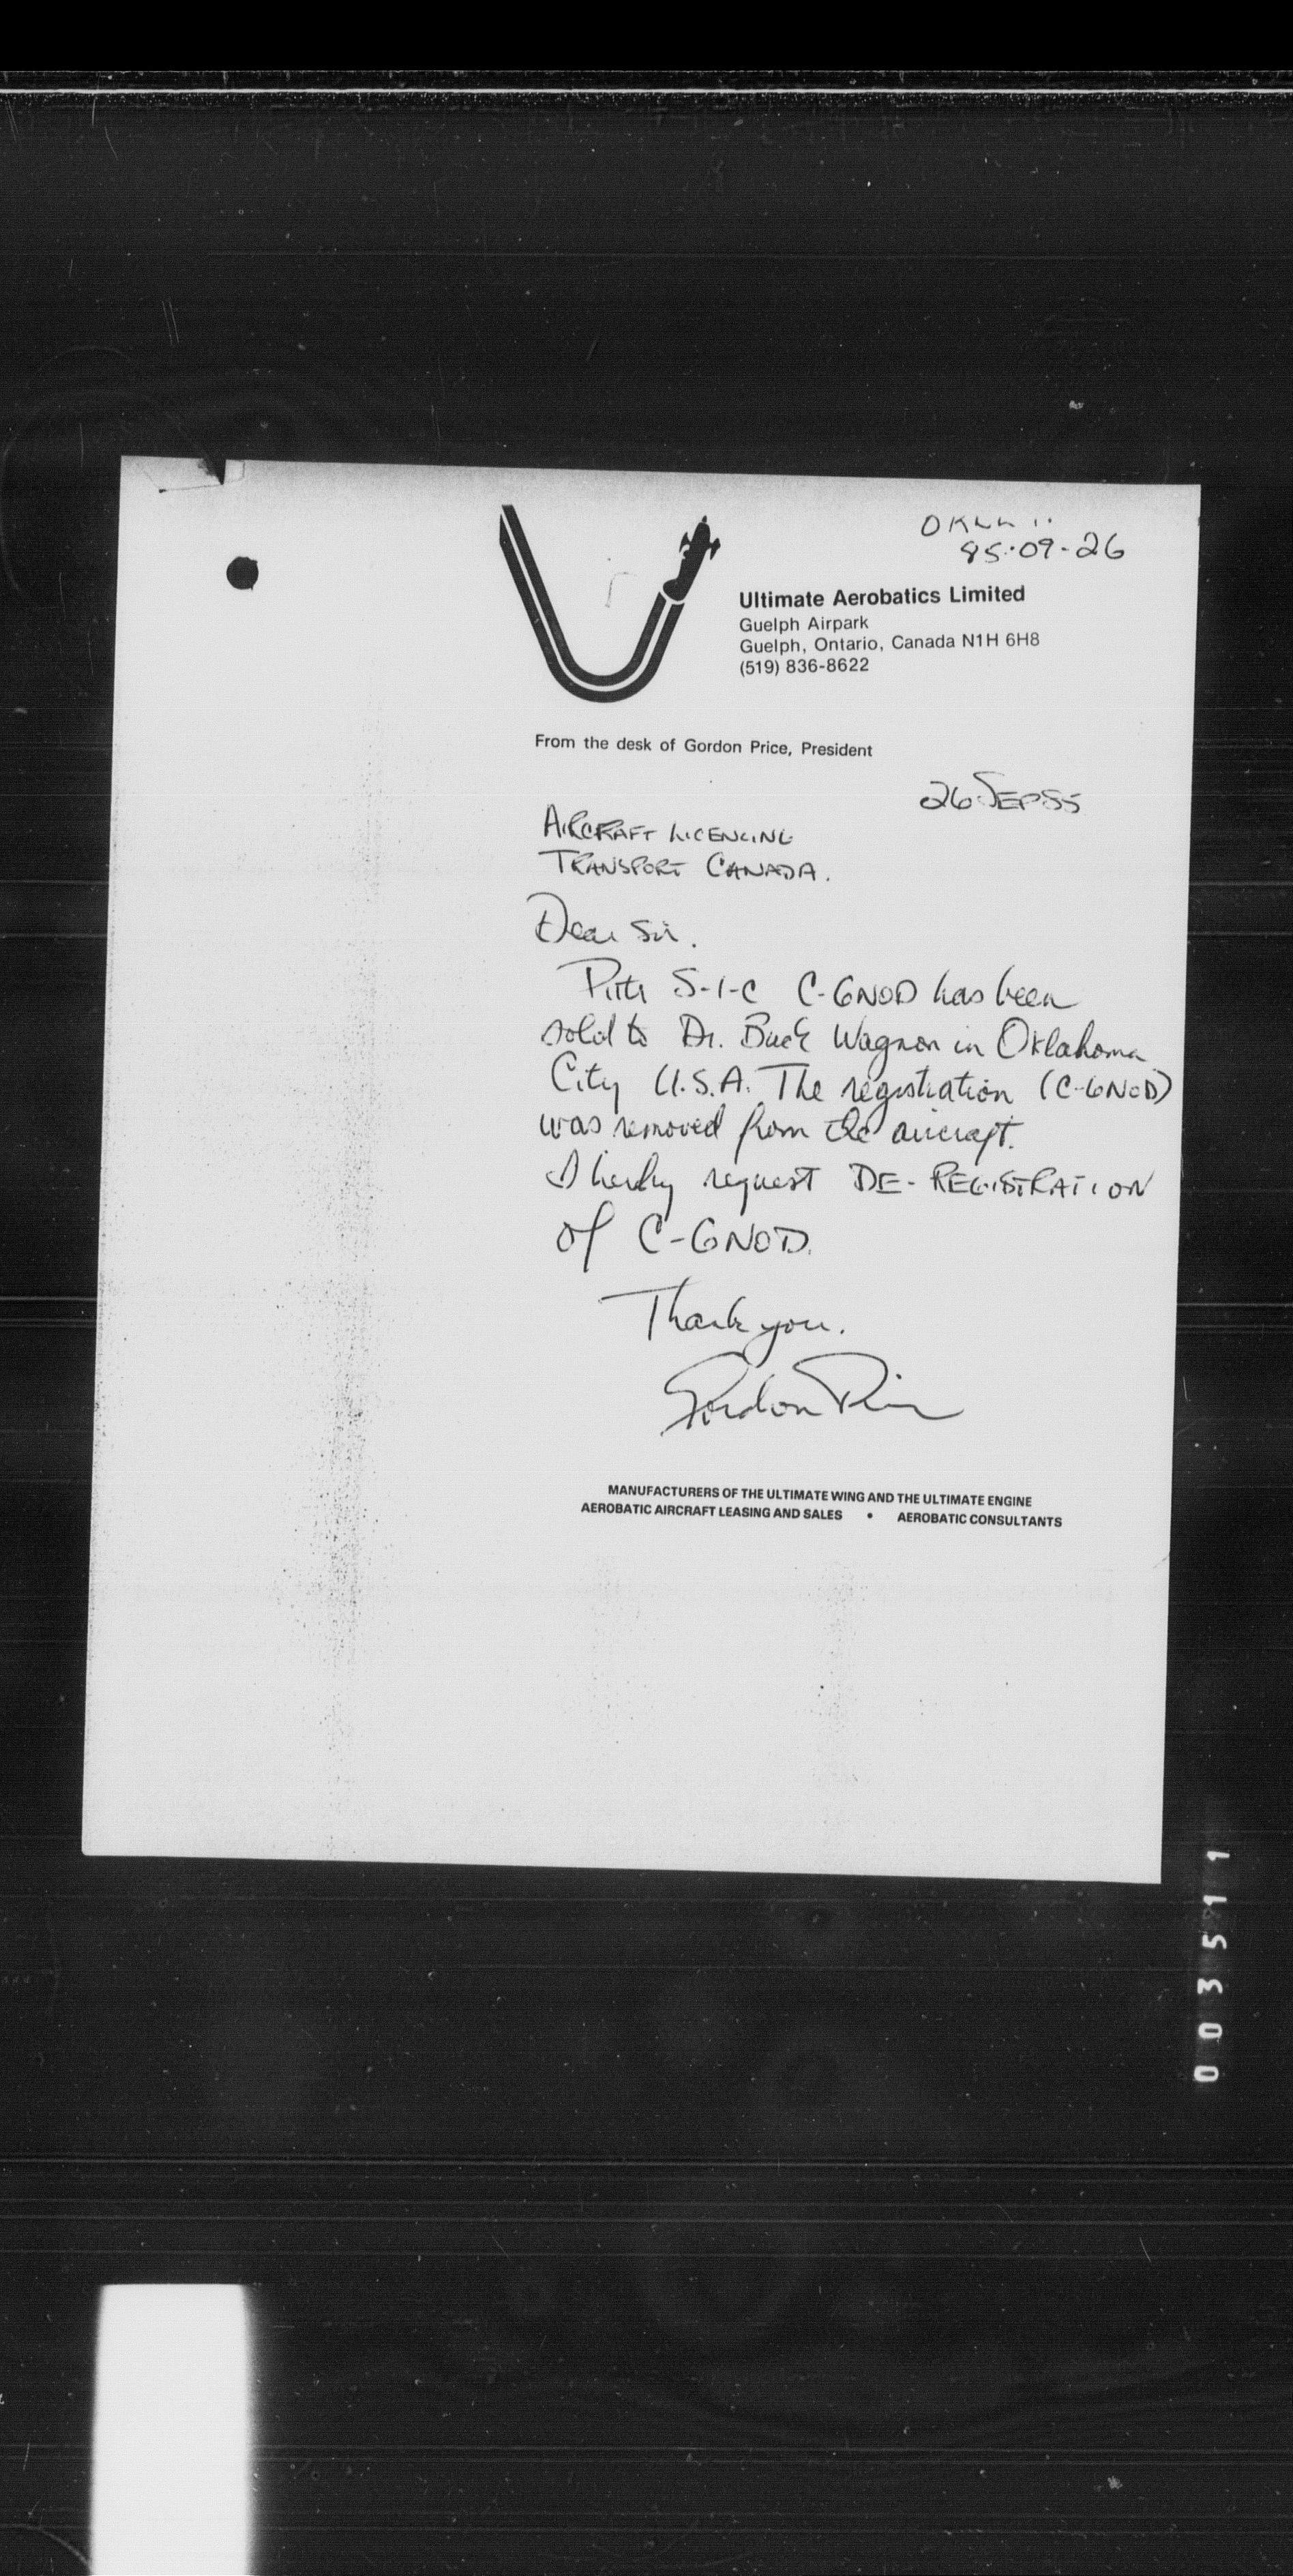 85-09-26
Ultimate Aerobatics Limited
Guelph Airpark
Guelph, Ontario, Canada N1H 6H8
(519) 836-8622
From the desk of Gordon Price, President
26 SEP 85
AIRCRAFT LICENCING
TRANSPORT CANADA.
Dear Sir.
Pitts S-1-C C-GNOD has been
sold to Dr. Buck Wagnon in Oklahoma
City U.S.A. The registration (C-GNOD)
was removed from the aircraft.
I hereby request DE-REGISTRATION
of C-GNOD.
Thank you.
Gordon Price
MANUFACTURERS OF THE ULTIMATE WING AND THE ULTIMATE ENGINE
AEROBATIC AIRCRAFT LEASING AND SALES • AEROBATIC CONSULTANTS
003511